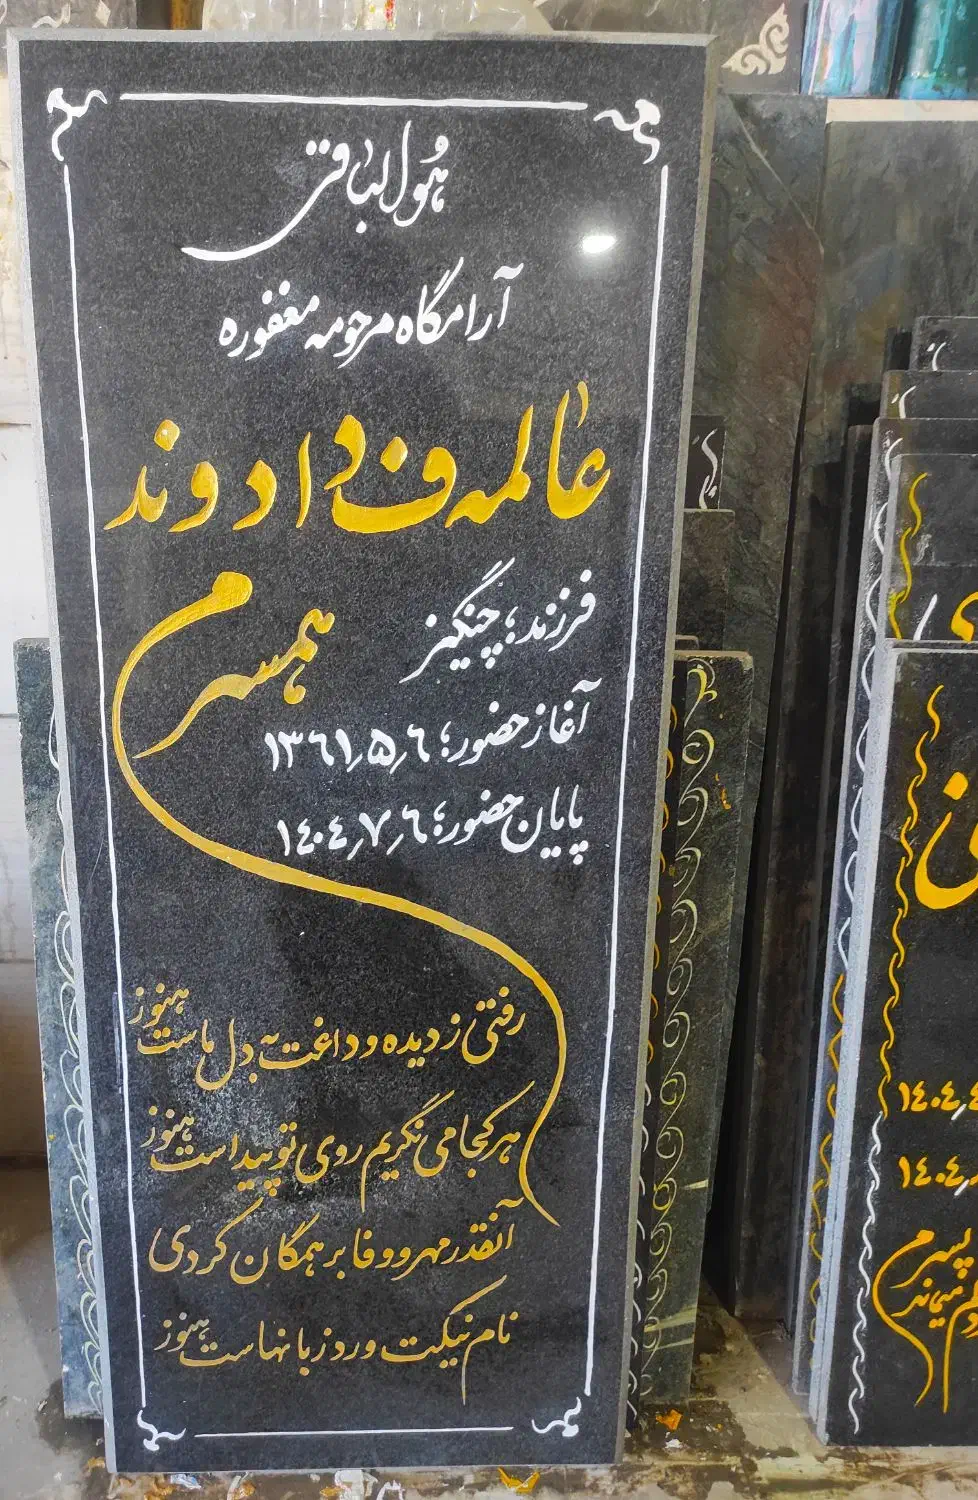 هُوالباقی
آرامگاه مرحومه مغفوره
عالمه فدادوند
فرزند؛ چنگیز
همسرم
آغاز حضور؛ ٦٫۵٫١٣٦١
پایان حضور؛ ٦٫٧٫١٤٠٤
رفتی ز دیده و داغت به دل ماست هنوز
هر کجا می نگریم روی تو پیداست هنوز
آنقدر مهر و وفا بر همگان کردی
نام نیکت ورد زبانهاست هنوز
١٤٠٤
١٤٠٤
پسرم